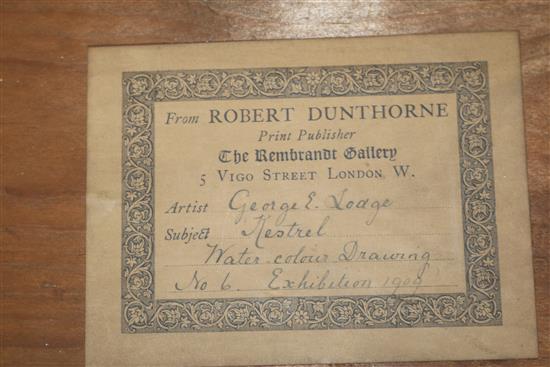 From ROBERT DUNTHORNE
Print Publisher
The Rembrandt Gallery
5 VIGO STREET LONDON W.
Artist George E. Lodge
Subject Kestrel
Water-colour Drawing
No 6. Exhibition 1909